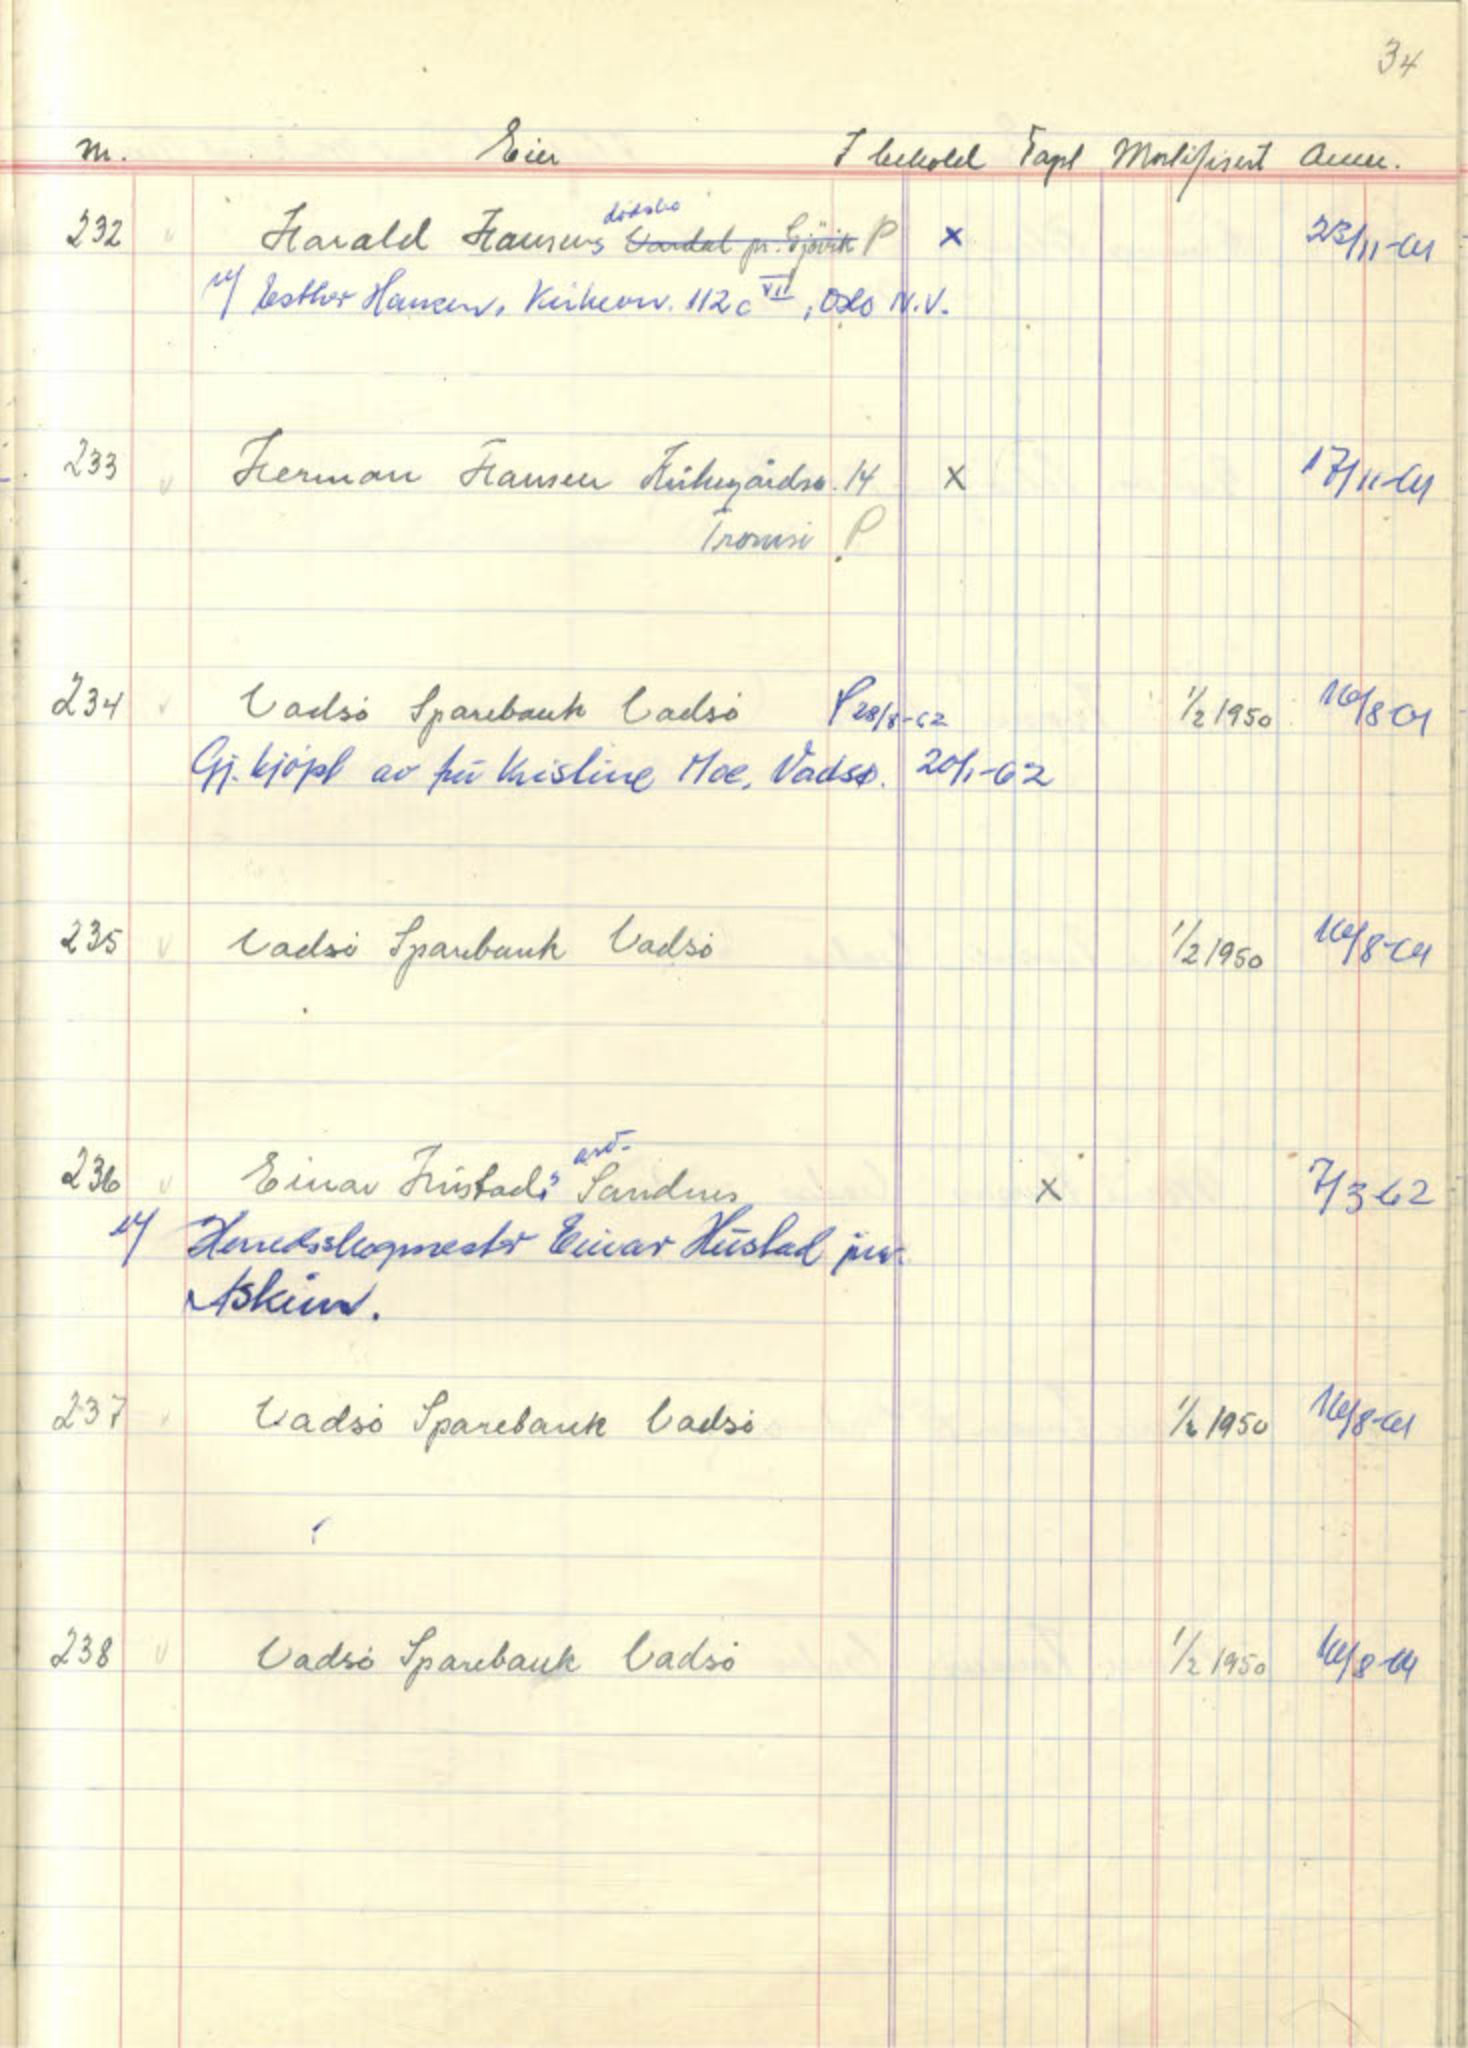 34
Nr. Eier I behold Tapt Mortifisert Anm.
dødsbo
232 Harald Hansens Vardal pr. Gjövik P x 23/11-61
v/ Esther Hansen, Kirkevn. 112 c VII, Oslo N.V.
233 Herman Hansen Kirkegårdsv. 14 x 17/11-61
Tromsö P
234 Vadsö Sparebank Vadsö P 28/8-62 1/2 1950 16/8-61
Gj. kjöpt av frü Kristine Moe, Vadsø. 20/1-62
235 Vadsö Sparebank Vadsö 1/2 1950 16/8-61
236 Einar Hüstads Sandnes x 7/3 62
v/ Herredsskogmester Einar Hüstad jün.
Askim.
237 Vadsö Sparebank Vadsö 1/2 1950 16/8-61
238 Vadsö Sparebank Vadsö 1/2 1950 16/8-61